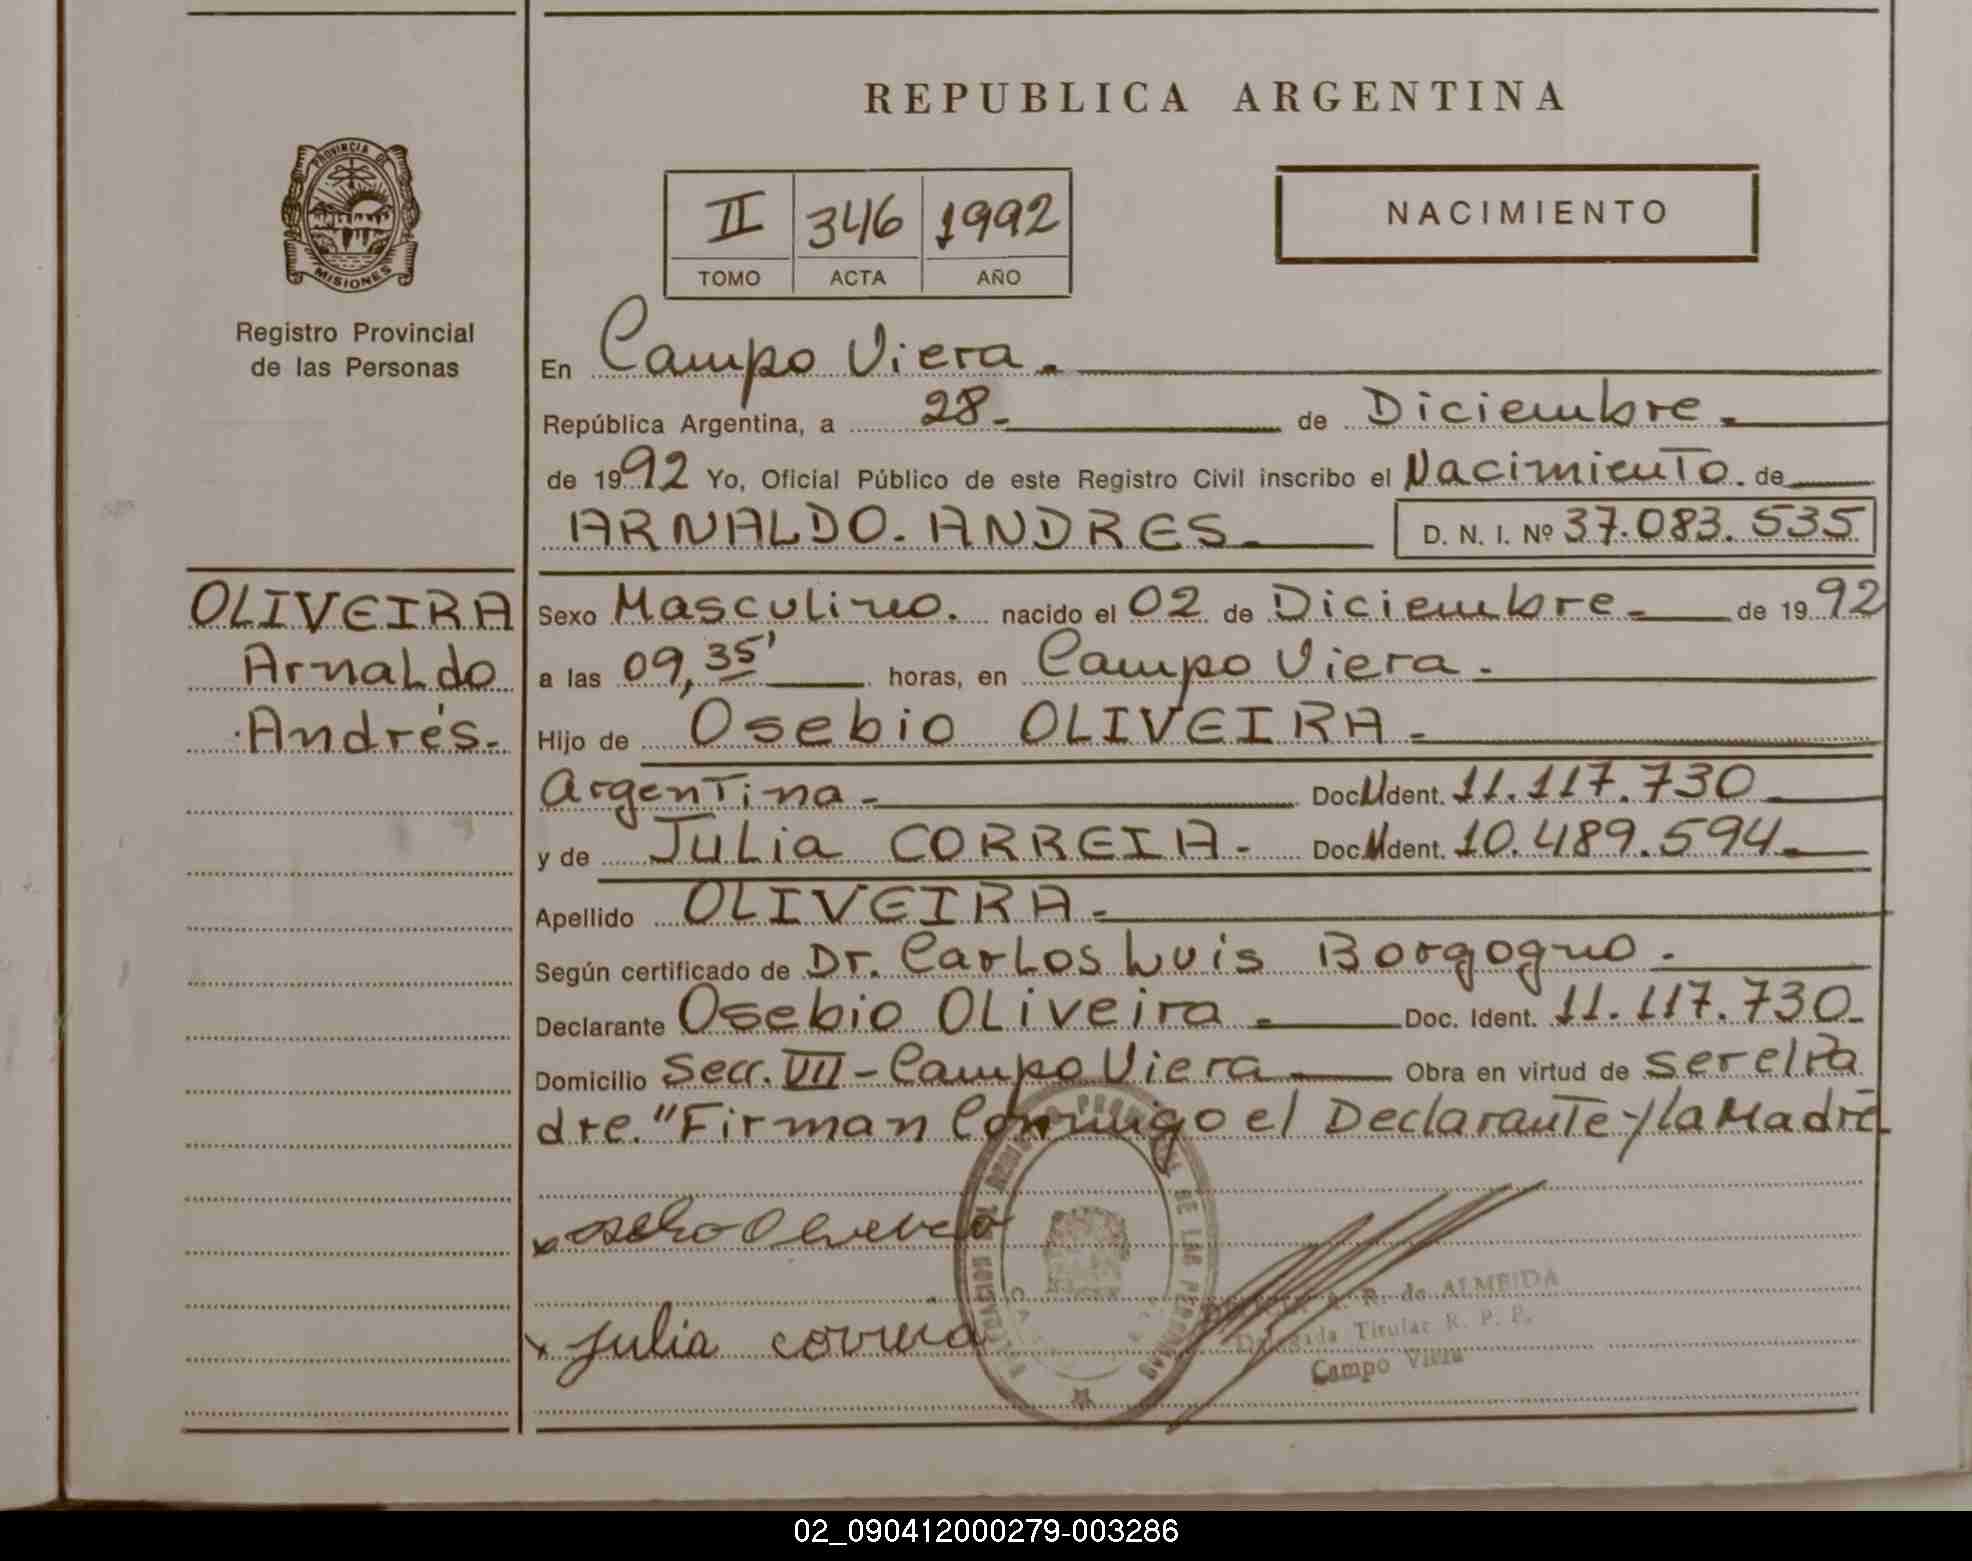 REPUBLICA ARGENTINA
PROVINCIA DE
MISIONES
Registro Provincial
de las Personas
II 346 1992
TOMO ACTA AÑO
NACIMIENTO
En Campo Viera.
República Argentina, a 28 de Diciembre
de 1992 Yo, Oficial Público de este Registro Civil inscribo el Nacimiento de
ARNALDO. ANDRES D. N. I. Nº 37.083.535
OLIVEIRA
Arnaldo
Andrés.
Sexo Masculino. nacido el 02 de Diciembre de 1992
a las 09,35' horas, en Campo Viera.
Hijo de Osebio OLIVEIRA.
Argentina Doc. Ident. 11.117.730
y de Julia CORREIA. Doc. Ident. 10.489.594
Apellido OLIVEIRA.
Según certificado de Dr. Carlos Luis Borgogno.
Declarante Osebio Oliveira Doc. Ident. 11.117.730
Domicilio Secc. VII - Campo Viera Obra en virtud de ser el Pa
dre." Firman Conmigo el Declarante y la Madre
Julia correia
A. R. de ALMEIDA
Delegada Titular R. P. P.
Campo Viera
DE LAS PERSONAS
02_090412000279-003286